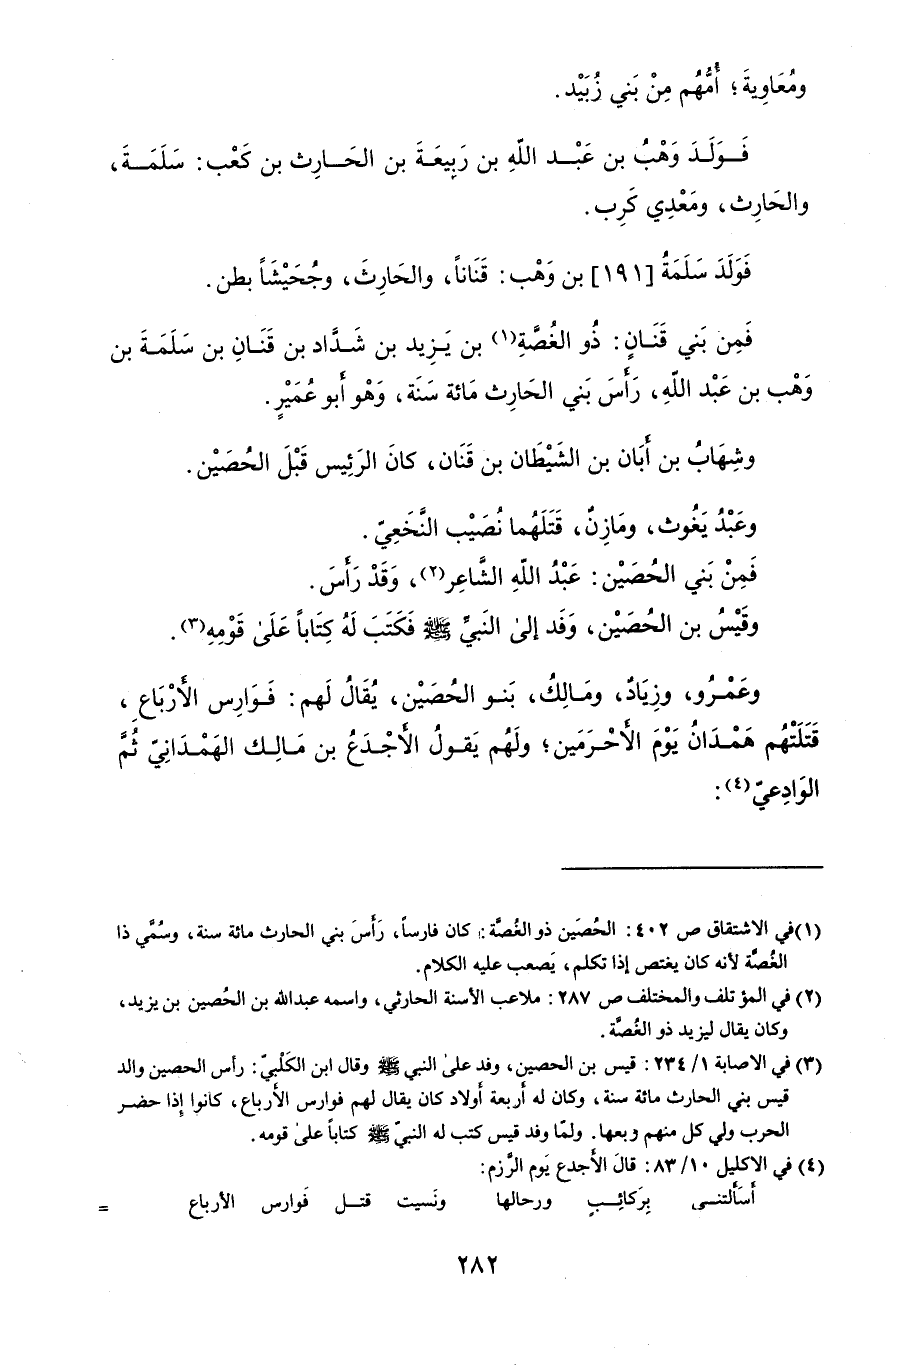 ومُعَاوِيةَ؛ أُمُّهُم مِنْ بَني زُبَيْد.
فَوَلَدَ وَهْبُ بن عَبْد اللّهِ بن رَبِيعَةَ بن الحَارِث بن كَعْب: سَلَمَةَ،
والحَارِث، ومَعْدِي كَرِب.
فَوَلَدَ سَلَمَةُ [١٩١] بن وَهْب: قَنَاناً، والحَارِثَ، وجُحَيْشَاً بطن.
فَمِن بَني قَنَانٍ: ذُو الغُصَّةِ(١) بن يَزِيد بن شَدَّاد بن قَنَانِ بن سَلَمَةَ بن
وَهْب بن عَبْد اللّهِ، رَأَسَ بَني الحَارِث مَائة سَنَة، وَهْو أَبو عُمَيْرٍ.
وشِهَابُ بن أَبَان بن الشَيْطَان بن قَنَان، كانَ الرَئِيس قَبْلَ الحُصَيْن.
وعَبْدُ يَغُوث، ومَازِنٌ، قَتَلَهُما نُصَيْب النَّخَعِيّ.
فَمِنْ بَني الحُصَيْن: عَبْدُ اللّهِ الشَّاعِر(٢)، وَقَدْ رَأَسَ.
وقَيْسُ بن الحُصَيْن، وَفَد إلىٰ النَبيِّ ﷺ فَكَتَبَ لَهُ كِتَاباً عَلَىٰ قَوْمِهِ(٣).
وعَمْرُو، وزِيَادٌ، ومَالِكُ، بَنو الحُصَيْن، يُقَالُ لَهم: فَوَارِس الأَرْبَاعِ،
قَتَلَتْهُم هَمْدَانُ يَوْمَ الأَحْرَمَين؛ ولَهُم يَقولُ الأَجْدَعُ بن مَالِك الهَمْدَانيّ ثُمَّ
الوَادِعيّ(٤):
(١)في الاشتقاق ص ٤٠٢: الحُصَين ذو الغُصَّة: كان فارساً، رَأَسَ بني الحارث مائة سنة، وسُمَّي ذا
الغُصَّة لأنه كان يغتص إذا تكلم، يَصعب عليه الكلام.
(٢) في المؤتلف والمختلف ص ٢٨٧: ملاعب الأسنة الحارثي، واسمه عبدالله بن الحُصين بن يزيد،
وكان يقال ليزيد ذو الغُصَّة.
(٣) في الاصابة ١/ ٢٣٤: قيس بن الحصين، وفد علىٰ النبي ﷺ وقال ابن الكَلْبيّ: رأس الحصين والد
قيس بني الحارث مائة سنة، وكان له أربعة أولاد كان يقال لهم فوارس الأرباع، كانوا إذا حضر
الحرب ولي كل منهم ربعها. ولمّا وفد قيس كتب له النبيّ ﷺ كتاباً علىٰ قومه.
(٤) في الاكليل ١٠/ ٨٣: قالَ الأجدع يَوم الرَّزم:
أَسَأَلتنـى بِرَكائِبٍ ورحالها ونَسيت قتل فَوارس الأرباع =
٢٨٢